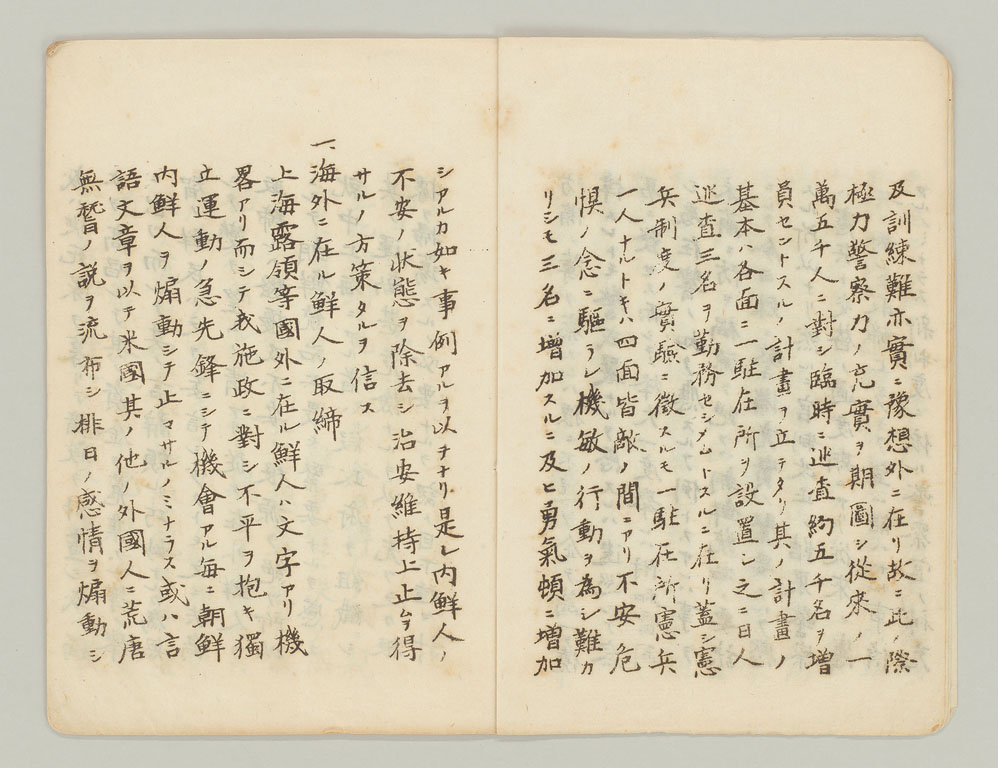 及訓練難亦實ニ豫想外ニ在リ故ニ此ノ際
極力警察力ノ充實ヲ期圖シ從來ノ一
萬五千人ニ對シ臨時ニ巡査約五千名ヲ增
員セントスルノ計畫ヲ立テタリ其ノ計畫ノ
基本ハ各面ニ一駐在所ヲ設置シ之ニ日人
巡査三名ヲ勤務セシメムトスルニ在リ蓋シ憲
兵制度ノ實驗ニ徵スルモ一駐在所憲兵
一人ナルトキハ四面皆敵ノ間ニアリ不安危
惧ノ念ニ驅ラレ機敏ノ行動ヲ為シ難カ
リシモ三名ニ增加スルニ及ヒ勇氣頓ニ增加
シアルカ如キ事例アルヲ以テナリ是レ内鮮人ノ
不安ノ狀態ヲ除去シ治安維持上止ムヲ得
サルノ方策タルヲ信ス
一、海外ニ在ル鮮人ノ取締
上海露領等國外ニ在ル鮮人ハ文字アリ機
畧アリ而シテ我施政ニ對シ不平ヲ抱キ獨
立運動ノ急先鋒ニシテ機會アル每ニ朝鮮
内鮮人ヲ煽動シテ止マサルノミナラス或ハ言
語文章ヲ以テ米國其ノ他ノ外國人ニ荒唐
無稽ノ說ヲ流布シ排日ノ感情ヲ煽動シ